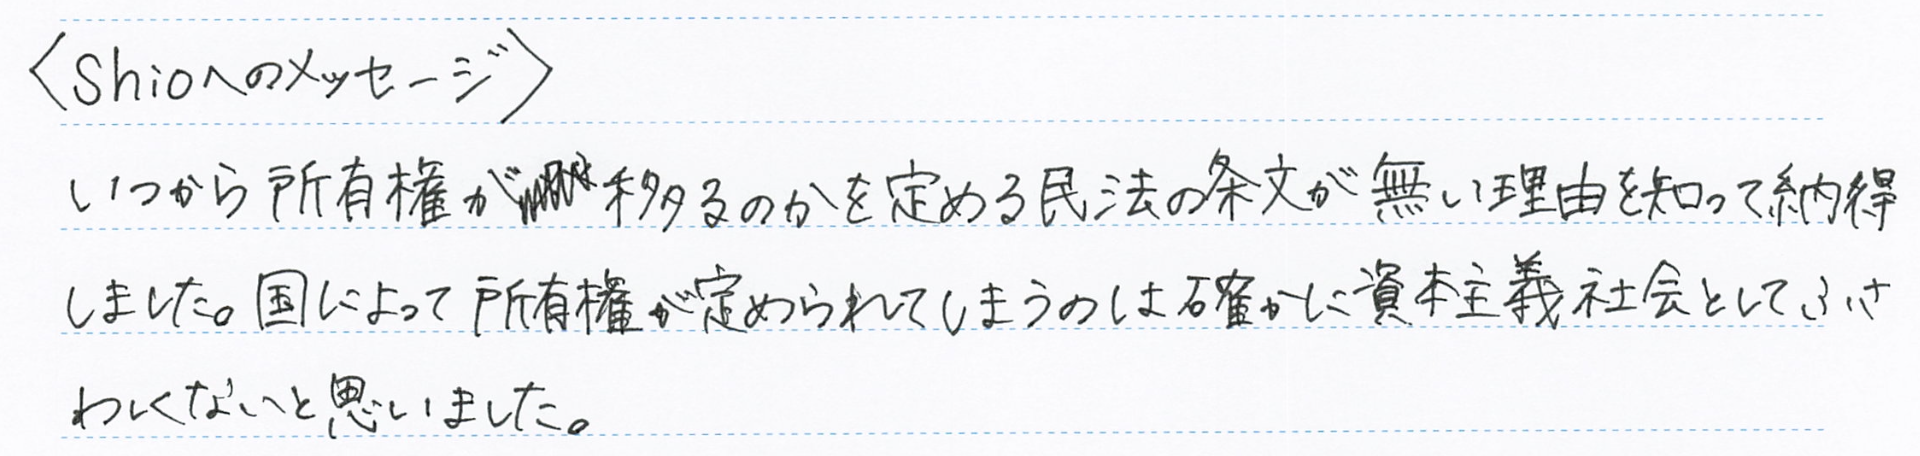 〈Shioへのメッセージ〉
いつから所有権が移るのかを定める民法の条文が無い理由を知って納得
しました。国によって所有権が定められてしまうのは確かに資本主義社会としてふさ
わしくないと思いました。